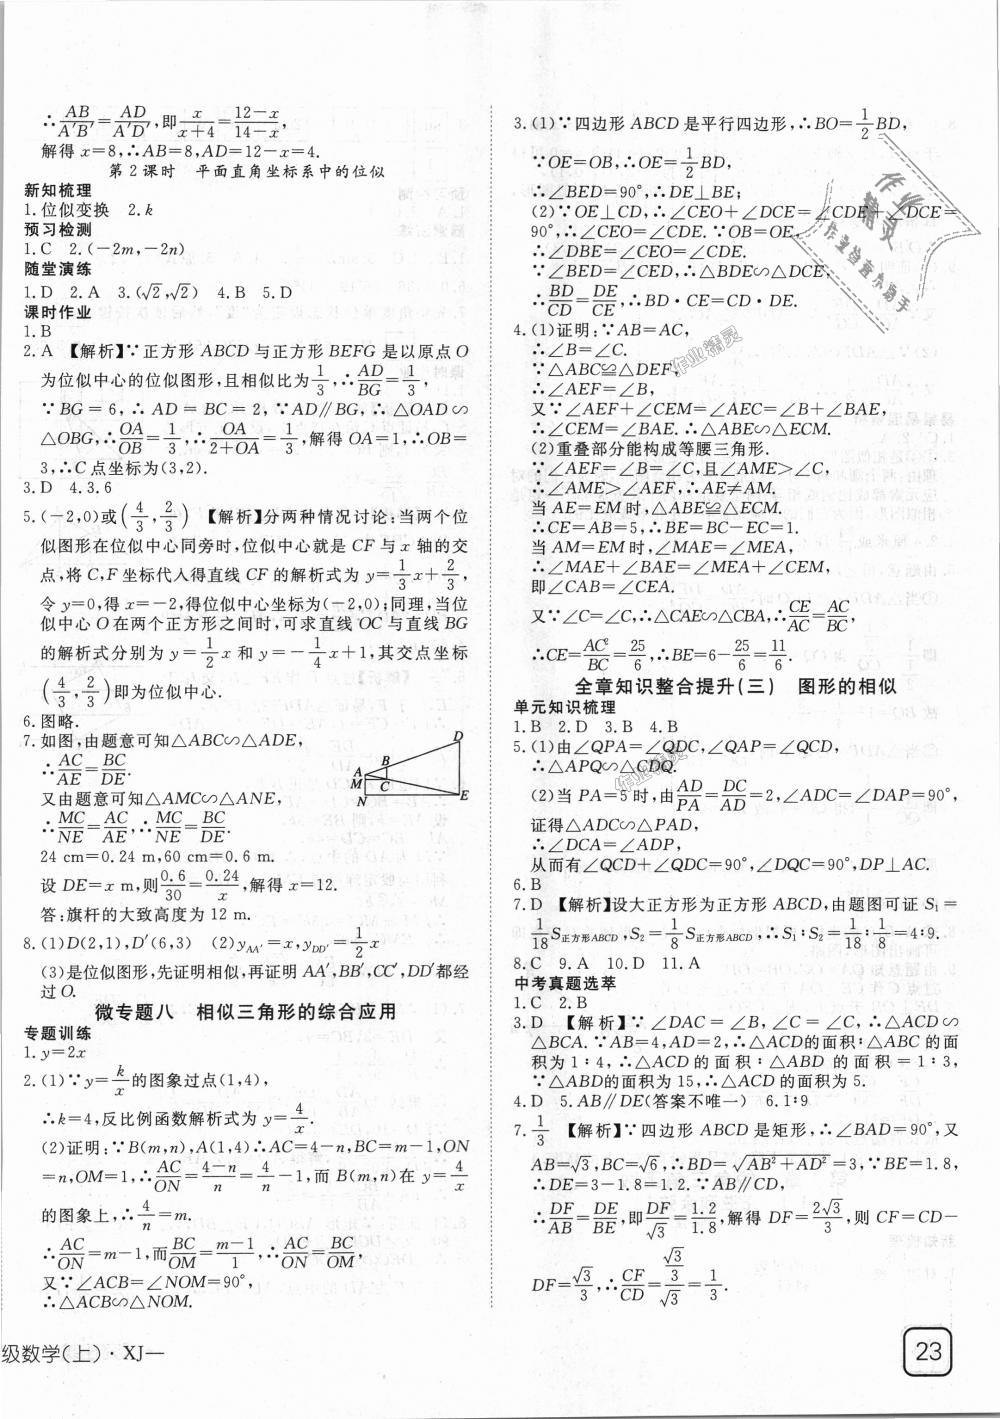 ∴AB/A'B'=AD/A'D',即x/(x+4)=(12-x)/(14-x),
解得 x=8,∴AB=8,AD=12-x=4.
第2课时 平面直角坐标系中的位似
新知梳理
1.位似变换 2.k
预习检测
1.C 2.(-2m,-2n)
随堂演练
1.D 2.A 3.(√2,√2) 4.B 5.D
课时作业
1.B
2.A 【解析】∵正方形 ABCD 与正方形 BEFG 是以原点 O
为位似中心的位似图形,且相似比为1/3,∴AD/BG=1/3,
∵BG=6,∴AD=BC=2,∵AD∥BG,∴△OAD∽
△OBG,∴OA/OB=1/3,∴OA/(2+OA)=1/3,解得 OA=1,∴OB=
3,∴C 点坐标为(3,2).
3.D 4.3.6
5.(-2,0)或(4/3,2/3) 【解析】分两种情况讨论:当两个位
似图形在位似中心同旁时,位似中心就是 CF 与 x 轴的交
点,将 C,F 坐标代人得直线 CF 的解析式为 y=1/3x+2/3,
令 y=0,得 x=-2,得位似中心坐标为(-2,0);同理,当位
似中心 O 在两个正方形之间时,可求直线 OC 与直线 BG
的解析式分别为 y=1/2x 和 y=-1/4x+1,其交点坐标
(4/3,2/3)即为位似中心.
6.图略.
7.如图,由题意可知△ABC∽△ADE,
∴AC/AE=BC/DE.
又由题意可知△AMC∽△ANE,
∴MC/NE=AC/AE,∴MC/NE=BC/DE.
24 cm=0.24 m,60 cm=0.6 m.
设 DE=x m,则0.6/30=0.24/x,解得 x=12.
答:旗杆的大致高度为 12 m.
D
B
A
M
C
N
E
8.(1)D(2,1),D'(6,3) (2)y_AA'=x,y_DD'=1/2x
(3)是位似图形,先证明相似,再证明 AA',BB',CC',DD'都经
过 O.
微专题八 相似三角形的综合应用
专题训练
1.y=2x
2.(1)∵y=k/x的图象过点(1,4),
∴k=4,反比例函数解析式为 y=4/x.
(2)证明:∵B(m,n),A(1,4)∴AC=4-n,BC=m-1,ON
=n,OM=1,∴AC/ON=(4-n)/n=4/n-1,而 B(m,n)在 y=4/x
的图象上,∴4/n=m.
∴AC/ON=m-1,而BC/OM=(m-1)/1,∴AC/ON=BC/OM
又∵∠ACB=∠NOM=90°,
∴△ACB∽△NOM.
级数学(上)·XJ—
3.(1)∵四边形 ABCD 是平行四边形,∴BO=1/2BD,
∵OE=OB,∴OE=1/2BD,
∴∠BED=90°,∴DE⊥BE;
(2)∵OE⊥CD,∴∠CEO+∠DCE=∠CDE+∠DCE=
90°,∴∠CEO=∠CDE.∵OB=OE,
∴∠DBE=∠CEO=∠CDE.
∵∠BED=∠CED,∴△BDE∽△DCE,
∴BD/CD=DE/CE,∴BD·CE=CD·DE.
4.(1)证明:∵AB=AC,
∴∠B=∠C.
∵△ABC≌△DEF,
∴∠AEF=∠B,
又∵∠AEF+∠CEM=∠AEC=∠B+∠BAE,
∴∠CEM=∠BAE.∴△ABE∽△ECM.
(2)重叠部分能构成等腰三角形.
∵∠AEF=∠B=∠C,且∠AME>∠C,
∴∠AME>∠AEF,∴AE≠AM.
当 AE=EM 时,△ABE≌△ECM.
∴CE=AB=5,∴BE=BC-EC=1.
当 AM=EM 时,∠MAE=∠MEA,
∴∠MAE+∠BAE=∠MEA+∠CEM,
即∠CAB=∠CEA.
又∵∠C=∠C,∴△CAE∽△CBA,∴CE/AC=AC/BC,
∴CE=AC²/BC=25/6,∴BE=6-25/6=11/6.
全章知识整合提升(三) 图形的相似
单元知识梳理
1.B 2.D 3.B 4.B
5.(1)由∠QPA=∠QDC,∠QAP=∠QCD,
∴△APQ∽△CDQ.
(2)当 PA=5 时,由AD/PA=DC/AD=2,∠ADC=∠DAP=90°,
证得△ADC∽△PAD,
∴∠DCA=∠ADP,
从而有∠QCD+∠QDC=90°,∠DQC=90°,DP⊥AC.
6.B
7.D 【解析】设大正方形为正方形 ABCD,由题图可证 S₁=
1/18S正方形ABCD,S₂=1/8S正方形ABCD,∴S₁:S₂=1/18:1/8=4:9.
8.C 9.A 10.D 11.A
中考真题选萃
1.C 2.B
3.D 【解析】∵∠DAC=∠B,∠C=∠C,∴△ACD∽
△BCA.∵AB=4,AD=2,∴△ACD的面积:△ABC 的面
积为1:4,∴△ACD 的面积:△ABD 的面积=1:3,
∵△ABD的面积为15,∴△ACD 的面积为5.
4.D 5.AB∥DE(答案不唯一) 6.1:9
7.1/3 【解析】∵四边形 ABCD 是矩形,∴∠BAD=90°,又
AB=√3,BC=√6,∴BD=√(AB²+AD²)=3,∵BE=1.8,
∴DE=3-1.8=1.2.∵AB∥CD,
∴DF/AB=DE/BE,即DF/√3=1.2/1.8,解得 DF=2√3/3,则 CF=CD-
DF=√3/3,∴CF/CD=(√3/3)/√3=1/3.
23
作业
精灵
作业检查小助手
作业精灵
作业精灵